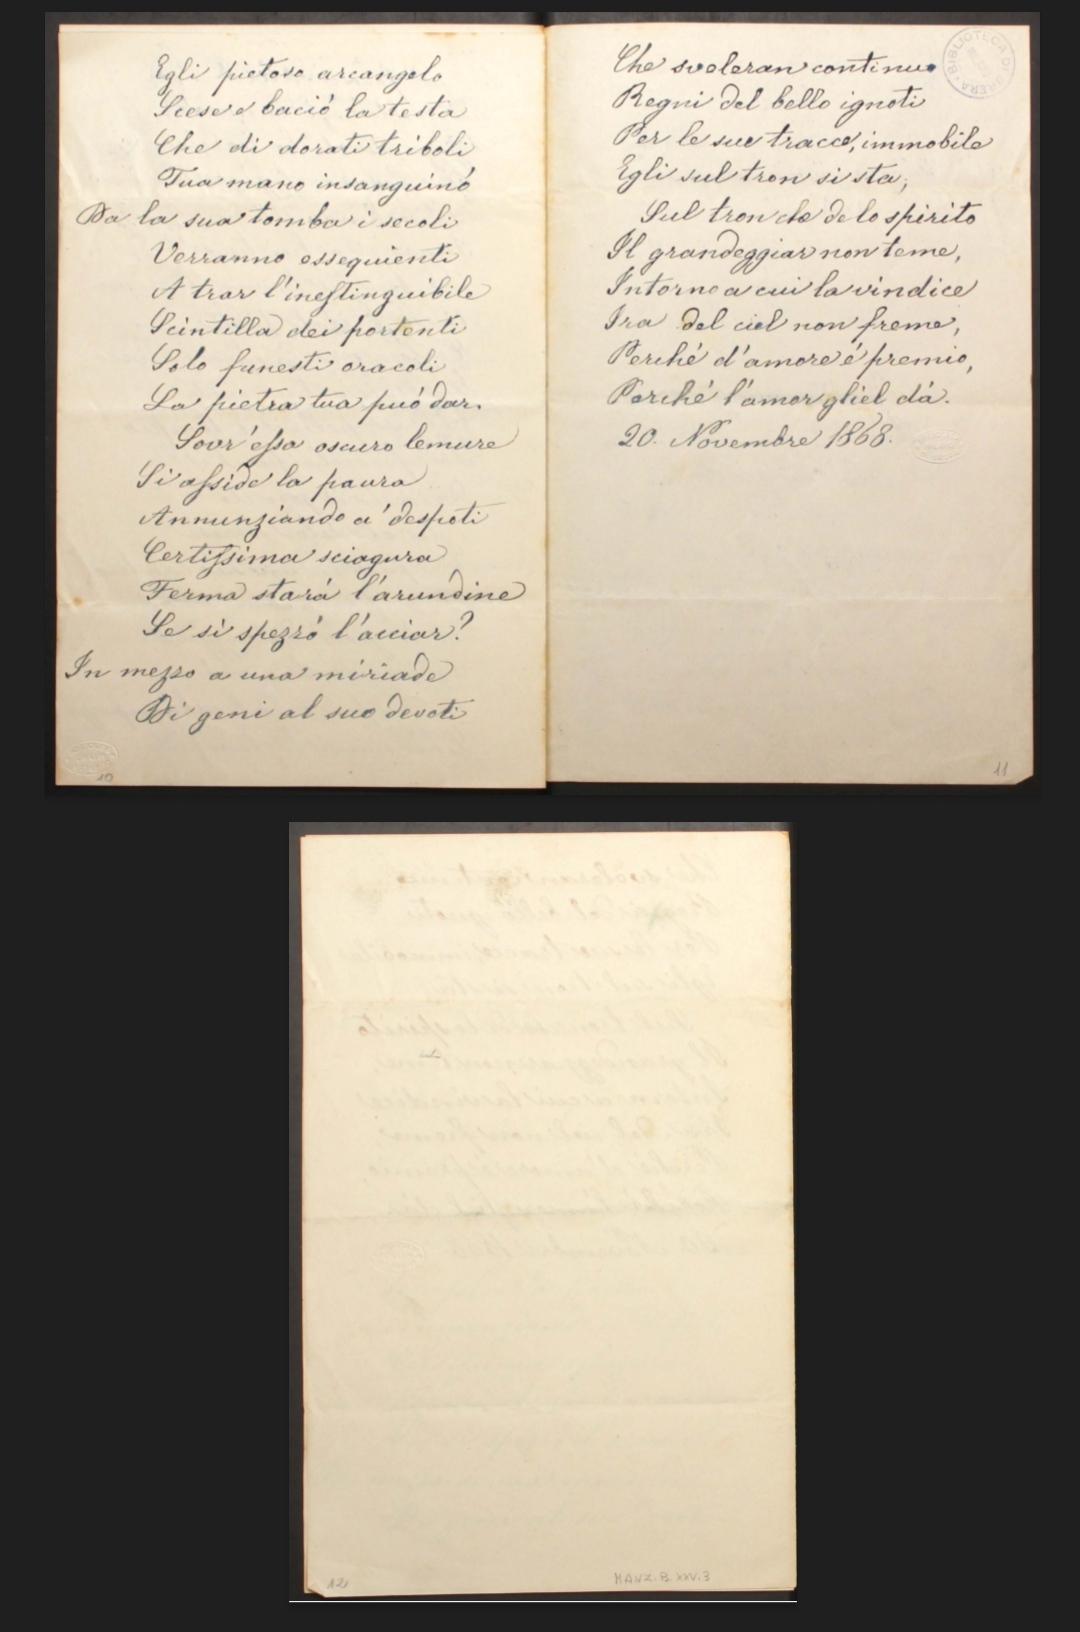 Egli pietoso arcangelo
Scese e bació la testa
Che di dorati triboli
Tua mano insanguinó
Da la sua tomba i secoli
Verranno ossequienti
A trar l'inestinguibile
Scintilla dei portenti
Solo funesti oracoli
La pietra tua puó dar.
Sovr'essa oscuro lemure
Si asside la paura
Annunziando a' despoti
Certissima sciagura
Ferma stará l'arundine
Se si spezzó l'acciar?
In mezzo a una miriade
Di geni al suo devoti
10
Che sveleran continuo
Regni del bello ignoti
Per le sue tracce, immobile
Egli sul tron si sta,
Sul tron che de lo spirito
Il grandeggiar non teme,
Intorno a cui la vindice
Ira del ciel non freme,
Perché d'amore é premio,
Perché l'amor gliel dá.
20. Novembre 1868.
BIBLIOTECA DI BRERA
11
12
MANZ. B. XXV. 3